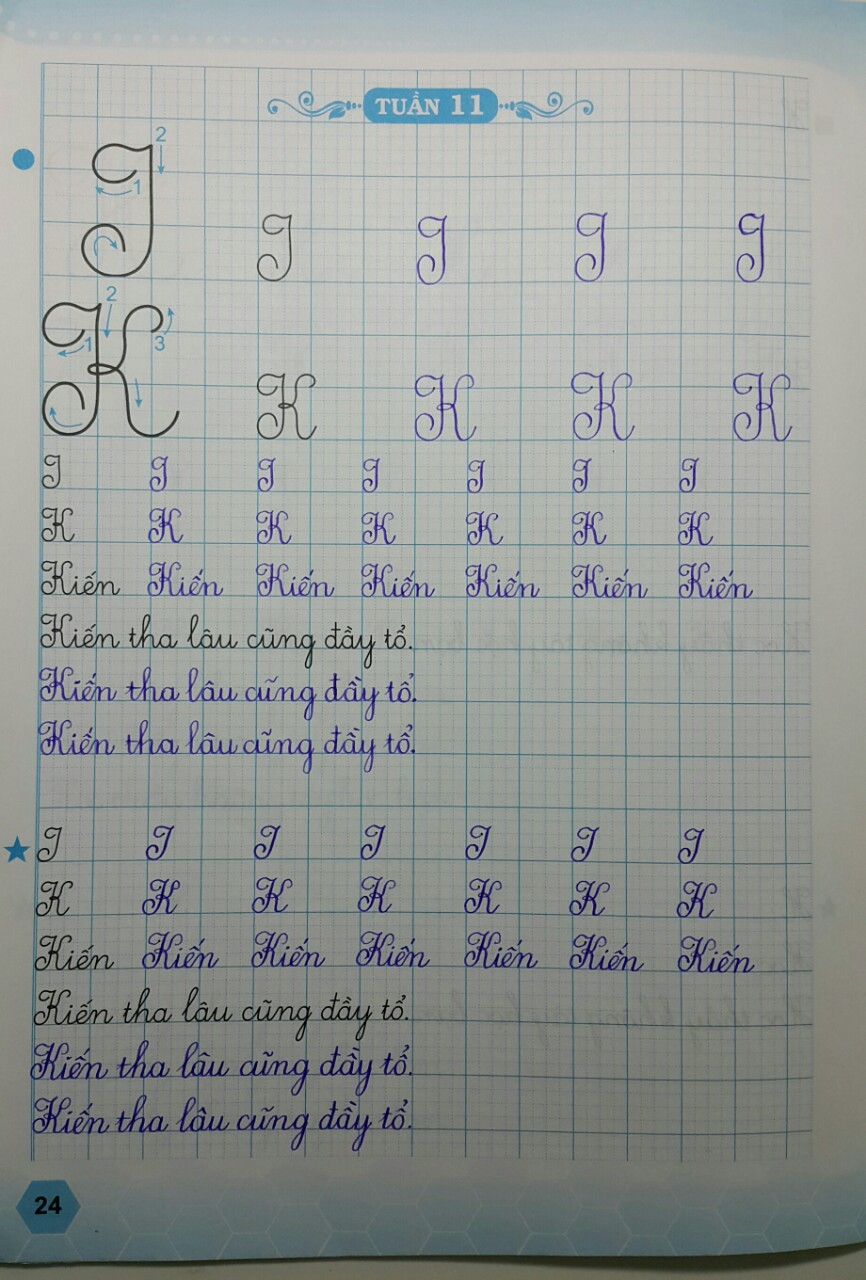 TUẦN 11
2
1
I I I I I
2
1 3
K K K K K
I I I I I I I
K K K K K K K
Kiến Kiến Kiến Kiến Kiến Kiến Kiến
Kiến tha lâu cũng đầy tổ.
Kiến tha lâu cũng đầy tổ.
Kiến tha lâu cũng đầy tổ.
I I I I I I I
K K K K K K K
Kiến Kiến Kiến Kiến Kiến Kiến Kiến
Kiến tha lâu cũng đầy tổ.
Kiến tha lâu cũng đầy tổ.
Kiến tha lâu cũng đầy tổ.
24